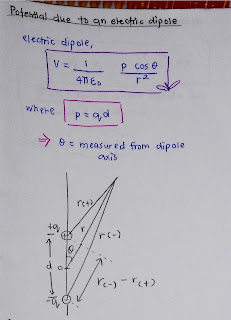 Potential due to an electric dipole
electric dipole,
V = 1/4πε₀ p cosθ/r²
where p = qd
⇒ θ = measured from dipole
axis
r(+)
+q
r
r(-)
θ
d
o
r(-) - r(+)
-q